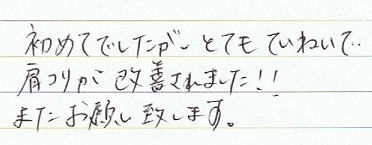 初めてでしたが とてもていねいで
肩コリが改善されました!!
またお願い致します。